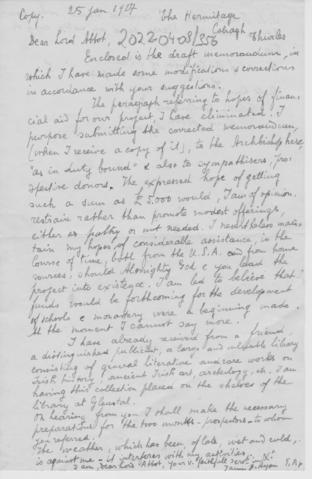 Copy. 25 Jan 1927 The Hermitage
Cabagh Thurles
Dear Lord Abbot, 2022-0408/356
Enclosed is the draft memorandum, in
which I have made some modifications & corrections
in accordance with your suggestions.
The paragraph referring to hopes of finan-
cial aid for our project, I have eliminated. I
purpose submitting the corrected memorandum,
(when I receive a copy of it), to the Archbishop here,
"as in duty bound" & also to sympathisers, pro-
spective donors. The expressed hope of getting
such a sum as £5.000 would, I am of opinion,
restrain rather than promote modest offerings,
either as paltry or not needed. I nevertheless main-
tain my hopes of considerable assistance, in the
course of time, both from the U.S.A. and from home
sources: should Almighty God & you lead the
project into existence. I am led to believe that
funds would be forthcoming for the development
of schools & monastery were a beginning made.
At the moment I cannot say more.
I have already received from a friend,
a distinguished publicist, a large and valuable library
consisting of general literature and rare works on
Irish history, ancient Irish art, archeology, etc. I am
having this collection placed on the shelves of the
library at Glenstal.
On hearing from you I shall make the necessary
preparations for the two monks - prospectors - to whom
you referred.
The weather, which has been of late, wet and cold,
is against me - it interferes with my activities.
I am, dear Lord Abbot, your v. faithfull servt. in Xt.
Ryan P.P.